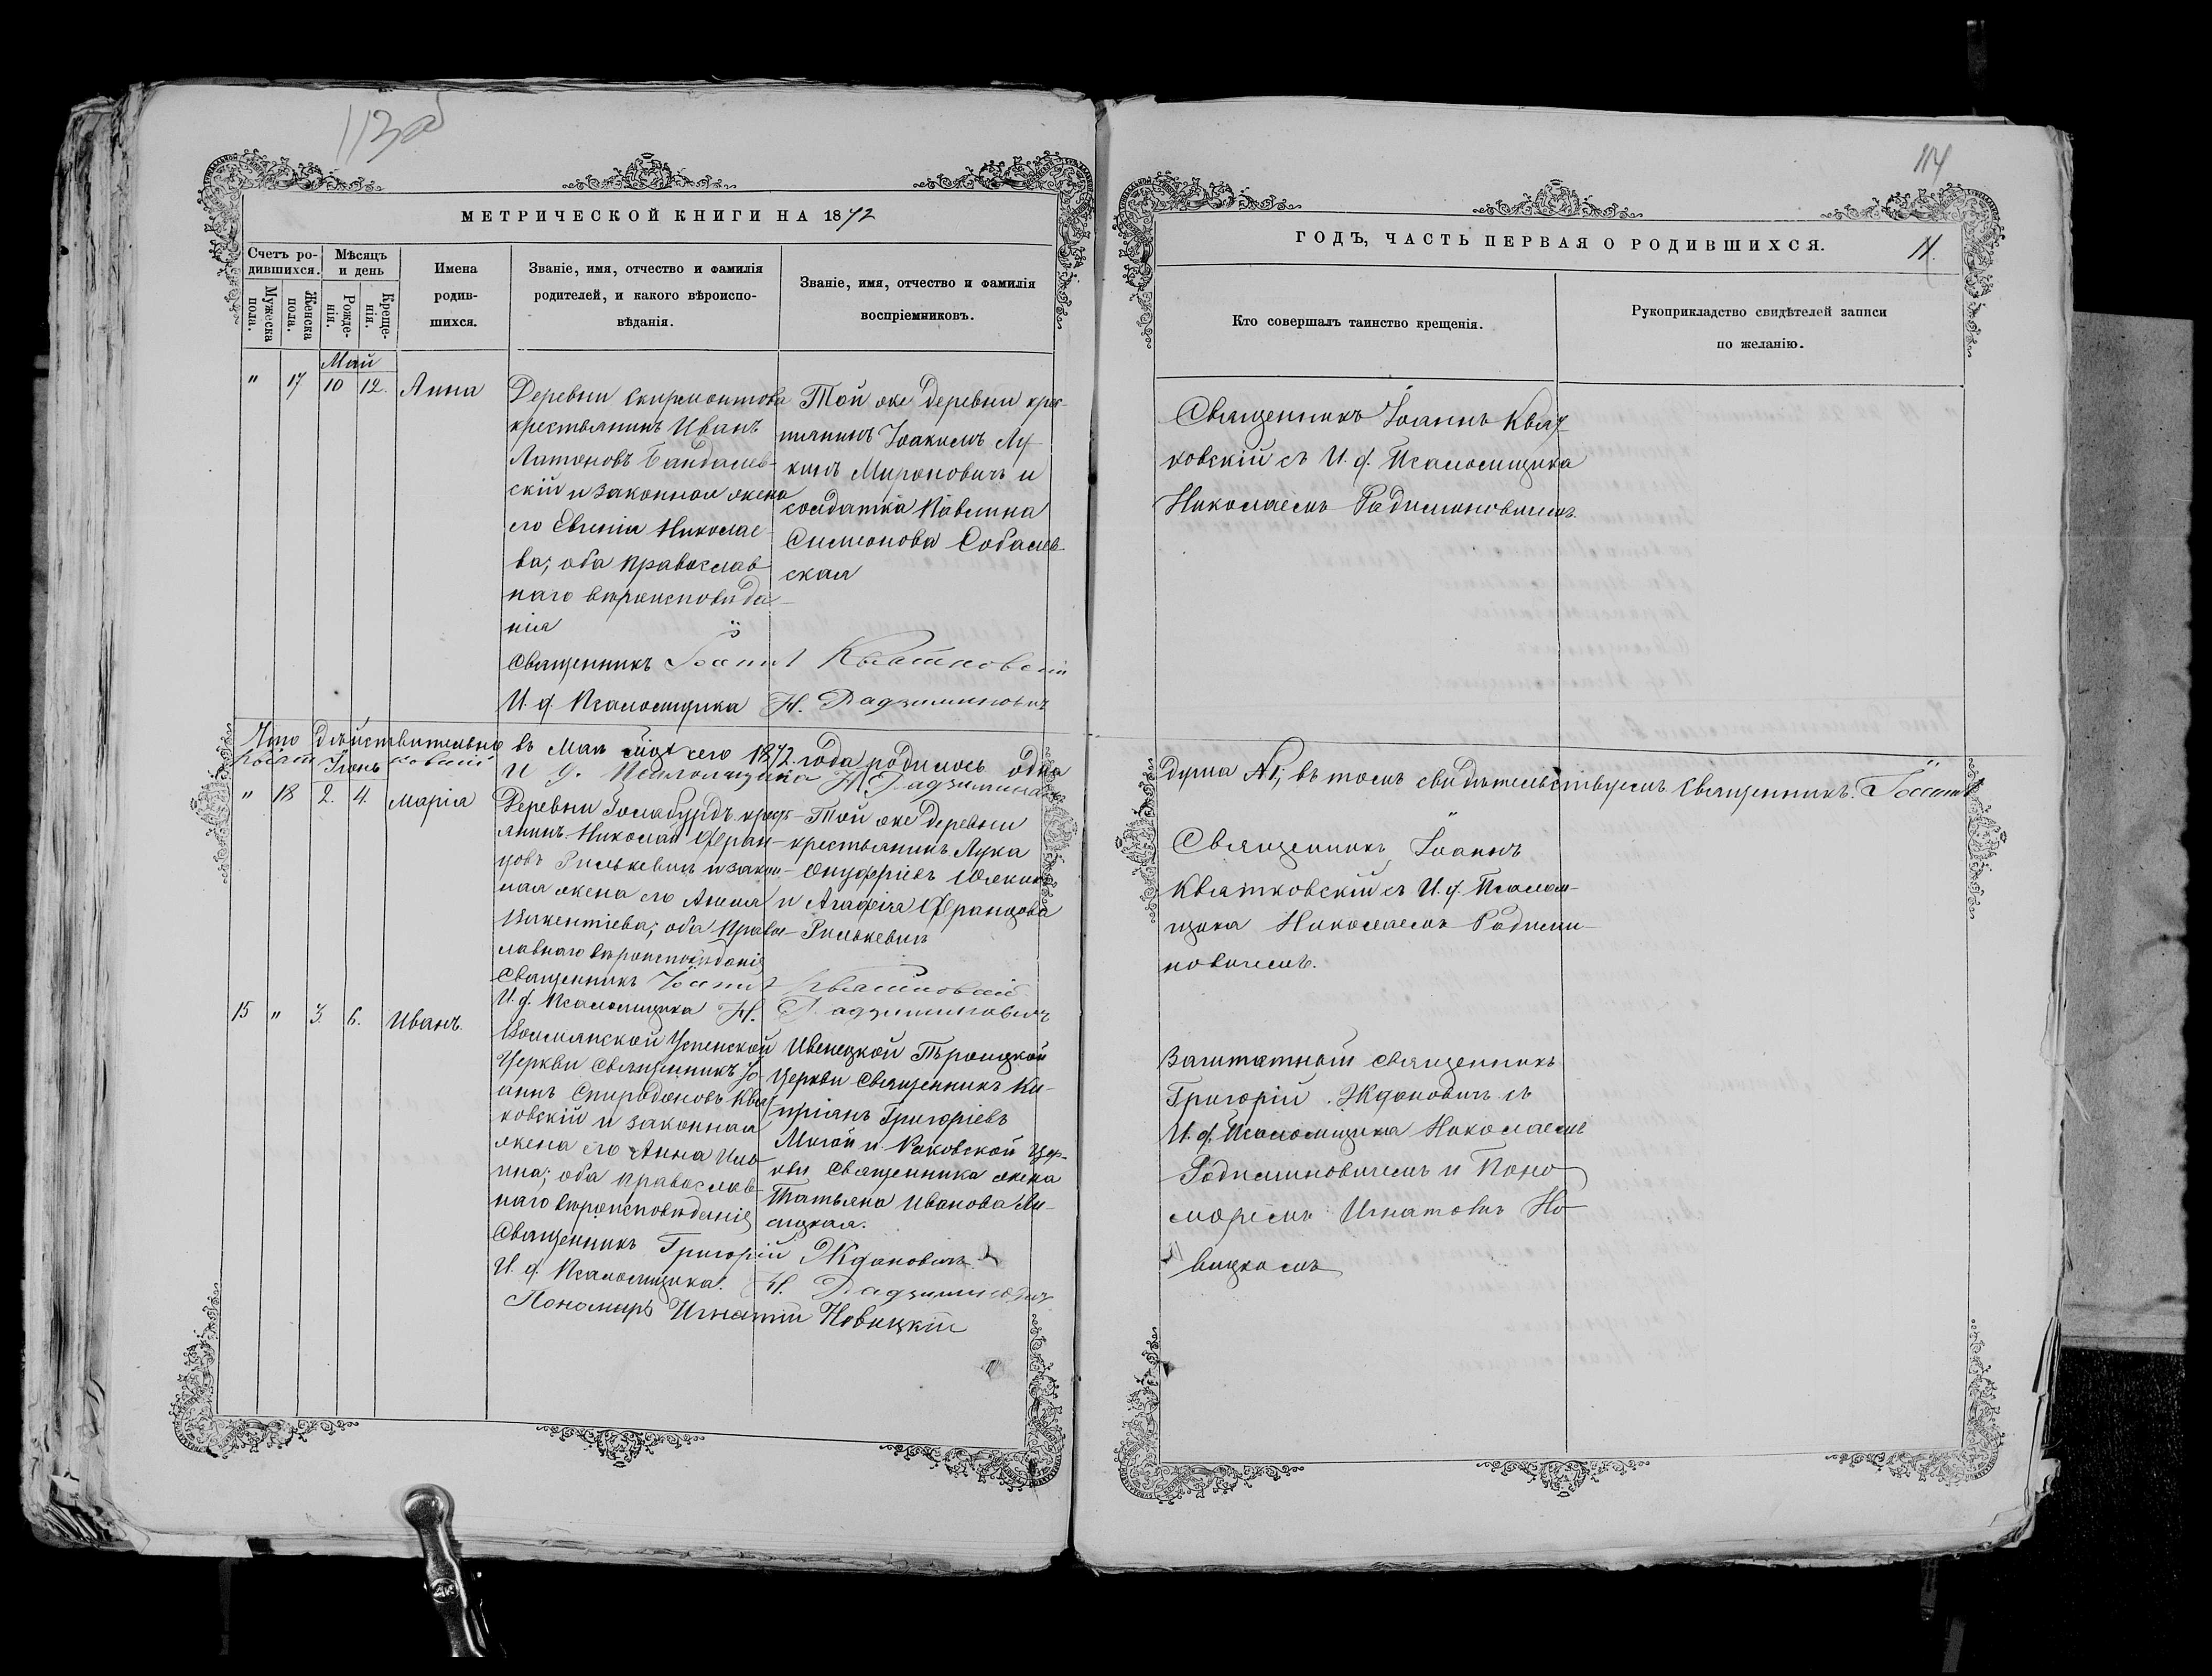 113об
МЕТРИЧЕСКОЙ КНИГИ НА 1872
Счетъ ро-
дившихся.
Мѣсяцъ
и день
Мужеска
пола.
Женска
пола.
Рожде-
нія.
Креще-
нія.
Имена
родив-
шихся.
Званіе, имя, отчество и фамилія
родителей, и какого вѣроиспо-
вѣданія.
Званіе, имя, отчество и фамилія
воспріемниковъ.
Май
" 17 10 12. Анна
Деревни Скирмонтова
крестьянинъ Иванъ
Антоновъ Бандалев-
скій и законная жена
его Евгенія Николае-
ва; оба православ-
наго вѣроисповѣда-
нія
Той же деревни крес-
тьянинъ Іоакимъ Лу-
кинъ Мироновичъ и
солдатка Павлина
Симеонова Собалев-
ская
Священникъ Іоаннъ Квятковскій
И. д. Псаломщика Н. Радзиминовичъ
Что дѣйствительно въ Маѣ мцѣ сего 1872. года родилось одна
Квятковскій И д. Псаломщика Н. Радзиминов
Іюнь
" 18 2. 4. Марія
Деревни крест-
янинъ Николай Фран-
цовъ Рилькевичъ и закон-
ная жена его Анна
Викентіева; оба Правос-
лавнаго вѣроисповѣданія
Той же деревни
крестьянинъ Лука
Онуфріевъ
и Агафія Францова
Рилькевичъ
Священникъ Іоаннъ Квятковскій
И. д. Псаломщика Н. Радзиминовичъ
15 " 3. 6. Иванъ.
Волмянской Успенской
Церкви Священникъ Іо-
аннъ Спиридоновъ Квят-
ковскій и законная
жена его Анна
оба православ-
наго вѣроисповѣданія
Ивенецкой Троицкой
Церкви Священникъ Ки-
пріанъ Григоріевъ
и Раковской Цер-
кви Священника жена
Татьяна Иванова
Священникъ Григорій Ждановичъ
И. д. Псаломщика. Н. Радзиминовичъ
Пономарь Игнатій Новицкій
114
ГОДЪ, ЧАСТЬ ПЕРВАЯ О РОДИВШИХСЯ.
11.
Кто совершалъ таинство крещенія.
Рукоприкладство свидѣтелей записи
по желанію.
Священникъ Іоаннъ Квят-
ковскій съ И. д. Псаломщика
Николаемъ Радзиминовичемъ.
душа №1, въ томъ свидѣтельствуемъ Священникъ. Іоаннъ
Священникъ Іоаннъ
Квятковскій съ И. д. Псалом-
щика Николаемъ Радзими-
новичемъ.
Заштатный священникъ
Григорій Ждановичъ съ
И. д. Псаломщика Николаемъ
Радзиминовичемъ и Поно-
маремъ Игнатомъ Но-
вицкимъ